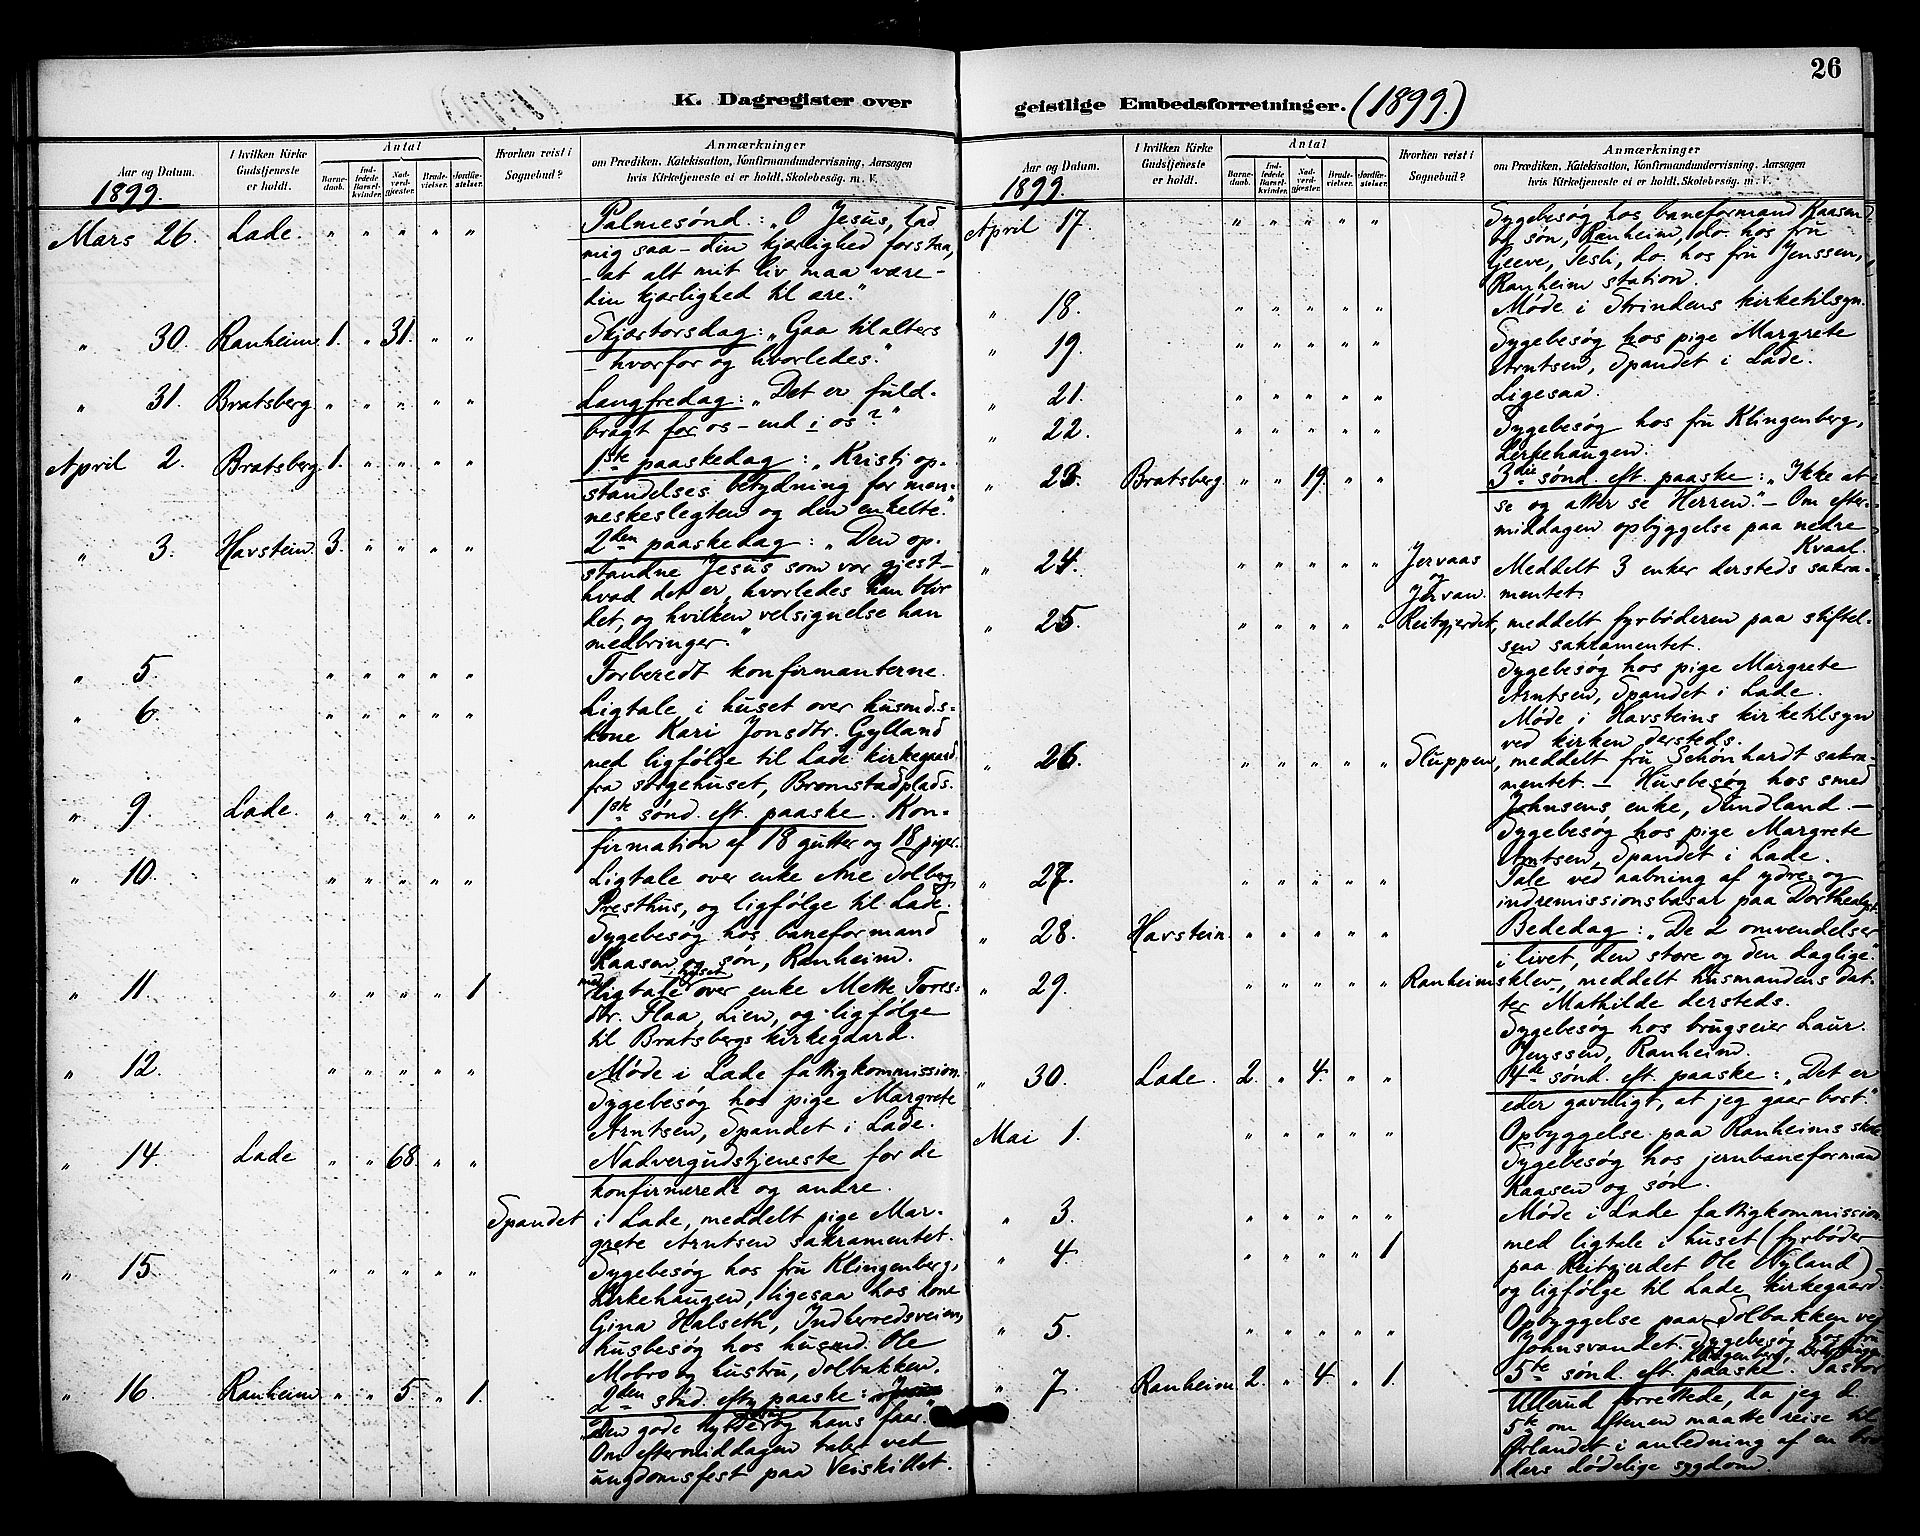 26
K. Dagregister over geistlige Embedsforretninger. (1899.)
Aar og Datum.
1899.
I hvilken Kirke
Gudstjeneste
er holdt.
Antal
Barne-
daab.
Ind-
ledede
Barsel-
kvinder.
Nad-
verd-
gjester.
Brude-
vielser.
Jordfæ-
stelser.
Hvorhen reist i
Sognebud?
Anmærkninger
om Prædiken, Katekisation, Konfirmandundervisning, Aarsagen
hvis Kirketjeneste ei er holdt. Skolebesøg. m. V.
Mars 26. Lade. " " " " " Palmesønd: „O Jesus, lad
mig saa – din kjærlighed forstaa,
– at alt mit liv maa være –
din kjærlighed til ære."
" 30. Ranheim. 1. " 31. " " Skjærtorsdag: „Gaa til alters
– hvorfor og hvorledes."
" 31. Bratsberg. " " " " " Langfredag: „Det er fuld-
bragt for os – end i os?"
April 2. Bratsberg. 1. " " " " 1ste paaskedag: „Kristi op-
standelses betydning for men-
neskeslegten og den enkelte."
" 3. Havstein. 3. " " " " 2den paaskedag: „Den op-
standne Jesus som vor gjest –
hvad det er, hvorledes han blir
det, og hvilken velsignelse han
medbringer."
" 5. " " " " " Forberedt konfirmanterne.
" 6. " " " " " Ligtale i huset over husmds.-
kone Kari Jonsdtr. Gylland
med ligfölge til Lade kirkegaard
fra sørgehuset, Bromstadplads.
" 9. Lade. " " " " " 1ste sønd. eft. paaske. Kon-
firmation af 18 gutter og 18 piger.
" 10. " " " " " Ligtale over enke Ane Solberg,
Presthus, og ligfölge til Lade.
Sygebesøg hos baneformand
Kaasen og søn, Ranheim.
" 11. " " " " 1 med ligtale i huset over enke Mette Tores-
dtr. Flaa, Lien, og ligfölge
til Bratsbergs kirkegaard.
" 12. " " " " " Møde i Lade fattigkommission.
Sygebesøg hos pige Margrete
Arntsen, Spandet i Lade.
" 14. Lade " " 68. " " Nadvergudstjeneste for de
konfirmerede og andre.
Spandet i Lade, meddelt pige Mar-
grete Arntsen sakramentet.
" 15. " " " " " Sygebesøg hos fru Klingenberg,
Lerkehaugen, ligesaa hos kone
Gina Halseth, Indherredsveien,
husbesøg hos husmd. Ole
Mobro by hustru, Solbakken.
" 16. Ranheim " " 5. " 1. 2den sønd. eft. paaske:
„Den gode hyrde og hans faar."
Om eftermiddagen talet ved
ungdomsfest paa Veiskillet.
Aar og Datum.
1899.
I hvilken Kirke
Gudstjeneste
er holdt.
Antal
Barne-
daab.
Ind-
ledede
Barsel-
kvinder.
Nad-
verd-
gjester.
Brude-
vielser.
Jordfæ-
stelser.
Hvorhen reist i
Sognebud?
Anmærkninger
om Prædiken, Katekisation, Konfirmandundervisning, Aarsagen
hvis Kirketjeneste ei er holdt. Skolebesøg. m. V.
April 17. " " " " " Sygebesøg hos baneformand Kaasen
søn, Ranheim, do. hos fru
Geeve, Tesli, do. hos fru Jenssen,
Ranheim station.
" 18. " " " " " Møde i Strindens kirketilsyn.
" 19. " " " " " Sygebesøg hos pige Margrete
Arntsen, Spandet i Lade.
" 21. " " " " " Ligesaa.
" 22. " " " " " Sygebesøg hos fru Klingenberg,
Lerkehaugen.
" 23. Bratsberg. " " 19. " " 3die sønd. eft. paaske: „Ikke at
se og atter se Herren." – Om efter-
middagen opbyggelse paa nedre
Kvaal.
" 24. " " " " " Jervaas og Jervan. Meddelt 3 enker dersteds sakra-
mentet.
" 25. " " " " " Reitgjerdet, meddelt fyrbøderen paa stiftel-
sen sakramentet.
Sygebesøg hos pige Margrete
Arntsen, Spandet i Lade.
Møde i Havsteins kirketilsyn
ved kirken dersteds.
" 26. " " " " " Sluppen, meddelt fru Schønhardt sakra-
mentet. – Husbesøg hos smed
Johnsens enke, Sundland –
Sygebesøg hos pige Margrete
Arntsen, Spandet i Lade.
" 27. " " " " " Tale ved aabning af ydre- og
indremissionsbasar paa Dorthealyst.
" 28. Havstein. " " " " " Bededag: „De 2 omvendelser
i livet, den store og den daglige."
" 29. " " " " " Ranheimsklev, meddelt husmandens dat-
ter Mathilde dersteds.
Sygebesøg hos brugseier Laur.
Jenssen, Ranheim.
" 30. Lade. 2. " 4. " " 4de sønd. eft. paaske: „Det er
eder gavnligt, at jeg gaar bort."
Mai 1. " " " " " Opbyggelse paa Ranheims skole
Sygebesøg hos jernbaneformand
Kaasen og søn.
" 3. " " " " " Møde i Lade fattigkommission
" 4. " " " " 1 med ligtale i huset (fyrbøder
paa Reitgjerdet Ole Nyland)
og ligfölge til Lade kirkegaard.
" 5. " " " " " Opbyggelse paa Solbakken ved
Johnsvandet. Sygebesøg hos fru
Klingenberg, Lerkehaugen.
" 7. Ranheim 2. " 4. " 1. 5te sønd. eft. paaske. Pastor
Ullerud forrettede, da jeg d.
5te om aftenen maatte reise til
Ørlandet i anledning af en bro-
ders dødelige sygdom.